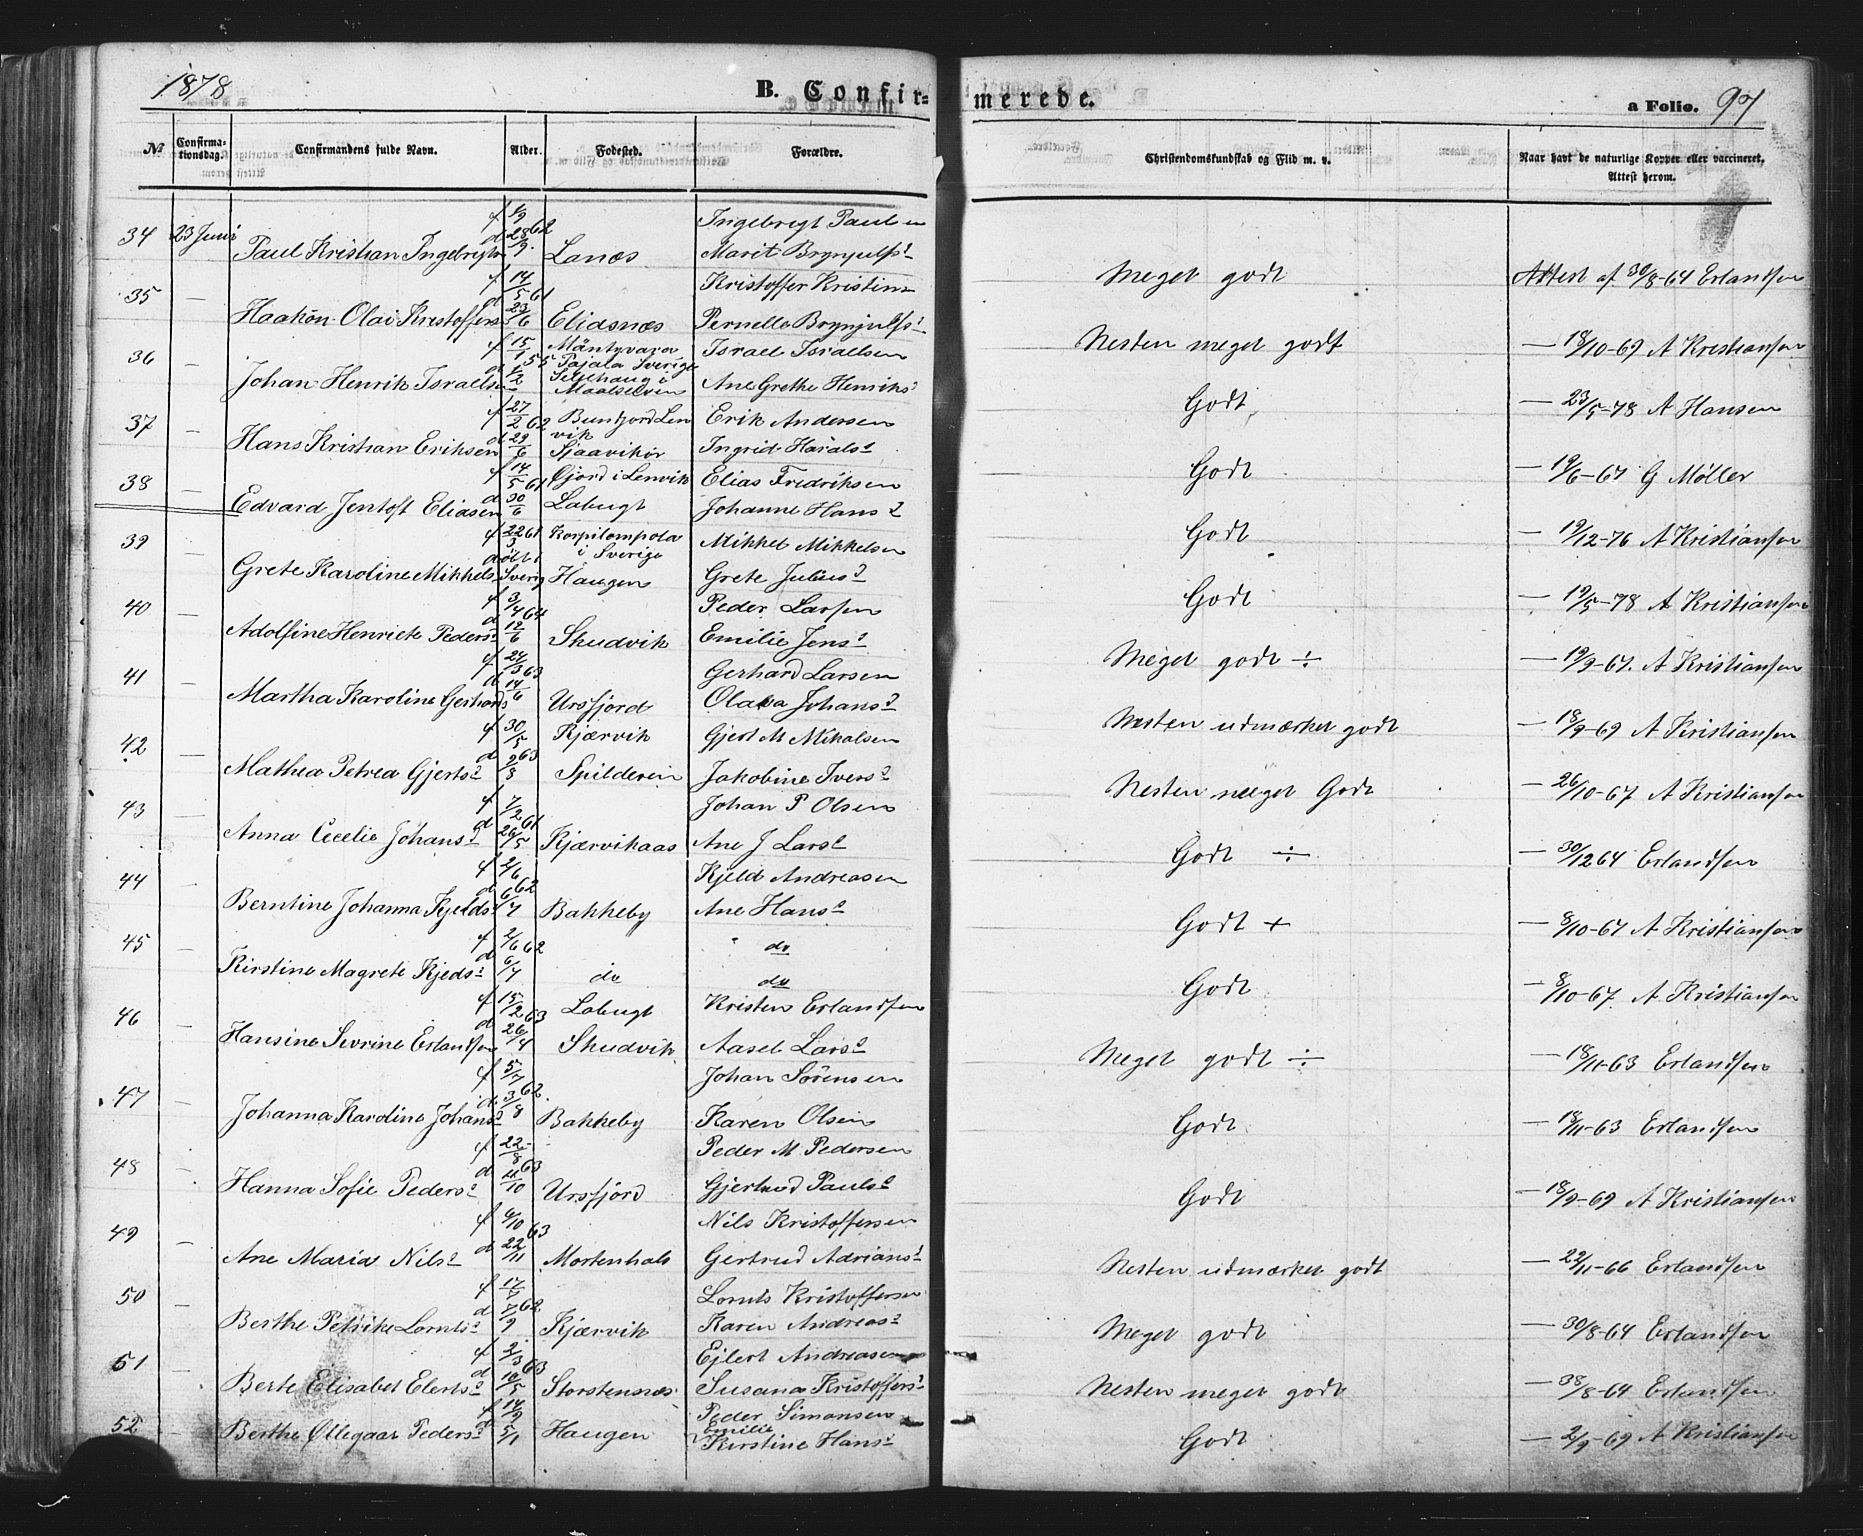 1878 B. Confirmerede. a Folio. 97
№ Confirmationsdag. Confirmandens fulde Navn. Alder. Fødested. Forældre. Christendomskundskab og Flid m. v. Naar havt de naturlige Kopper eller vaccineret, Attest herom.
f 1/9 62 Ingebregt Paulsen
34 23 Juni Paul Kristian Ingebrigts d 28/9 Lanes Marit Brynjulfsd Meget godt Attest af 30/8-64 Erlandsen
f 14/5 61 Kristoffer Kristian
35 — Haakon Olai Kristoffers d 23/6 Elidsnæs Pernelle Brynjulfsd Nesten meget godt — 18/10-69 A Kristiansen
f 15/1 55 Mäntyvara Pajala Sverige Israel Israelsen
36 — Johan Henrik Israelsen d 1/2 Sellehaug i Maalselven Ane Grethe Henriksd Godt — 23/5-78 A Hansen
f 27/2 62 Bunkjord Lenvik Erik Andersen
37 — Hans Kristian Eriksen d 29/6 Sjaavikør Ingrid Haralsd Godt — 19/6-67 G Møller
f 14/5 61 Gjord i Lenvik Elias Fredriksen
38 — Edvard Jentoft Eliasen d 30/6 Labugt Johanne Hansd Godt — 19/12-76 A Kristiansen
f 22/3 61 Korpilompola i Sverige Mikkel Mikkelsen
39 — Grete Karoline Mikkels døbt i Sverig Haugen Grete Juliusd Godt — 19/5-78 A Kristiansen
f 3/4 64 Peder Larsen
40 — Adolfine Henriete Pedersd d 12/6 Skudvik Emilie Jensd Meget godt ÷ — 19/9-67. A Kristiansen
f 24/3 63 Gerhard Larsen
41 — Martha Karoline Gerhards d 14/6 Ursfjord Olava Johansd Nesten udmærket godt — 18/9-69 A Kristiansen
f 30/5 63 Kjærvik Gjert M Mikalsen
42 — Mathea Petrea Gjertsd d 9/8 Spilderein Jakobine Iversd Nesten meget Godt — 26/10-67 A Kristiansen
f 7/2 61 Johan P Olsen
43 — Anna Cecelie Johansd d 26/5 Kjærvikaas Ane J Larsd Godt ÷ — 30/12 64 Erlandsen
f 2/6 62 Kjeld Andreasen
44 — Berntine Johanna Kjelds d 6/7 Bakkeby Ane Hansd Godt + — 8/10-67 A Kristiansen
f 2/6 62 do
45 — Kirstine Magrete Kjedsd d 6/7 do do Godt — 8/10-67 A Kristiansen
f 15/2 63 Labugt Kristen Erlandsen
46 — Hansine Sevrine Erlandsen d 26/4 Skudvik Aasel Larsd Meget godt ÷ — 18/11-63 Erlandsen
f 5/7 62 Johan Sørensen
47 — Johanna Karoline Johansd d 3/8 Bakkeby Karen Olsen Godt — 18/11-63 Erlandsen
f 22/8 63 Peder M Pedersen
48 — Hanna Sofie Pedersd d 4/10 Ursfjord Gjertrud Paulsd Godt — 18/9-69 A Kristiansen
f 6/10 63 Nils Kristoffersen
49 — Ane Maria Nilsd d 22/11 Mortenhals Gertrud Adriansd Nesten udmærket godt — 22/11-66 Erlandsen
f 17/7 62 Lornts Kristoffersen
50 — Berthe Petrike Lorntsd d 7/9 Kjærvik Karen Andreasd Meget godt — 30/8-64 Erlandsen
f 2/3 63 Ejlert Andreasen
51 — Berte Elisabet Elertsd d 10/5 Storstensnæs Susana Kristoffersd Nesten meget godt — 38/8-64 Erlandsen
f 14/9 Peder Simonsen
52 — Berthe Øllegaar Pedersd d 5/1 Haugen Emilie Kirstine Hansd Godt — 2/9-69 A Kristiansen